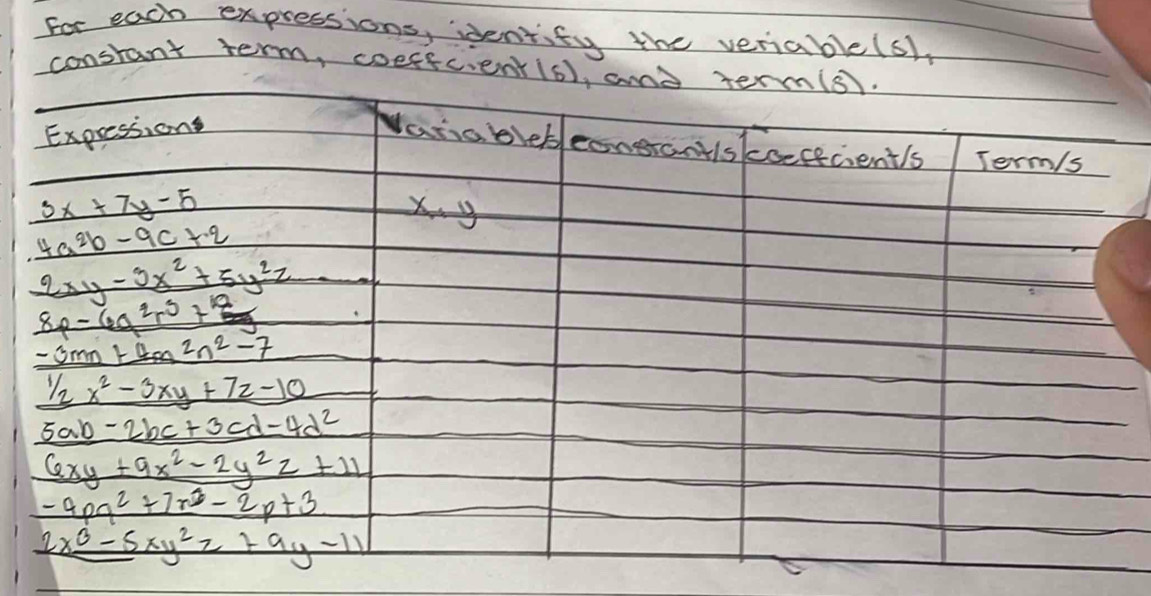 For each expressions, identify the veriable(s),
constant term, coefficient(s), and term(s).
Expressions Variable/s constant/s coefficient/s Term/s
3x + 7y - 5 x, y
4a²b - 9c + 2
2xy - 3x² + 5y²z
8p - 6q²r³ + 12
-3mn + 4m²n² - 7
1/2 x² - 3xy + 7z - 10
5ab - 2bc + 3cd - 4d²
6xy + 9x² - 2y²z + 11
-4pq² + 7r³ - 2p + 3
2x³ - 5xy²z + 9y - 11